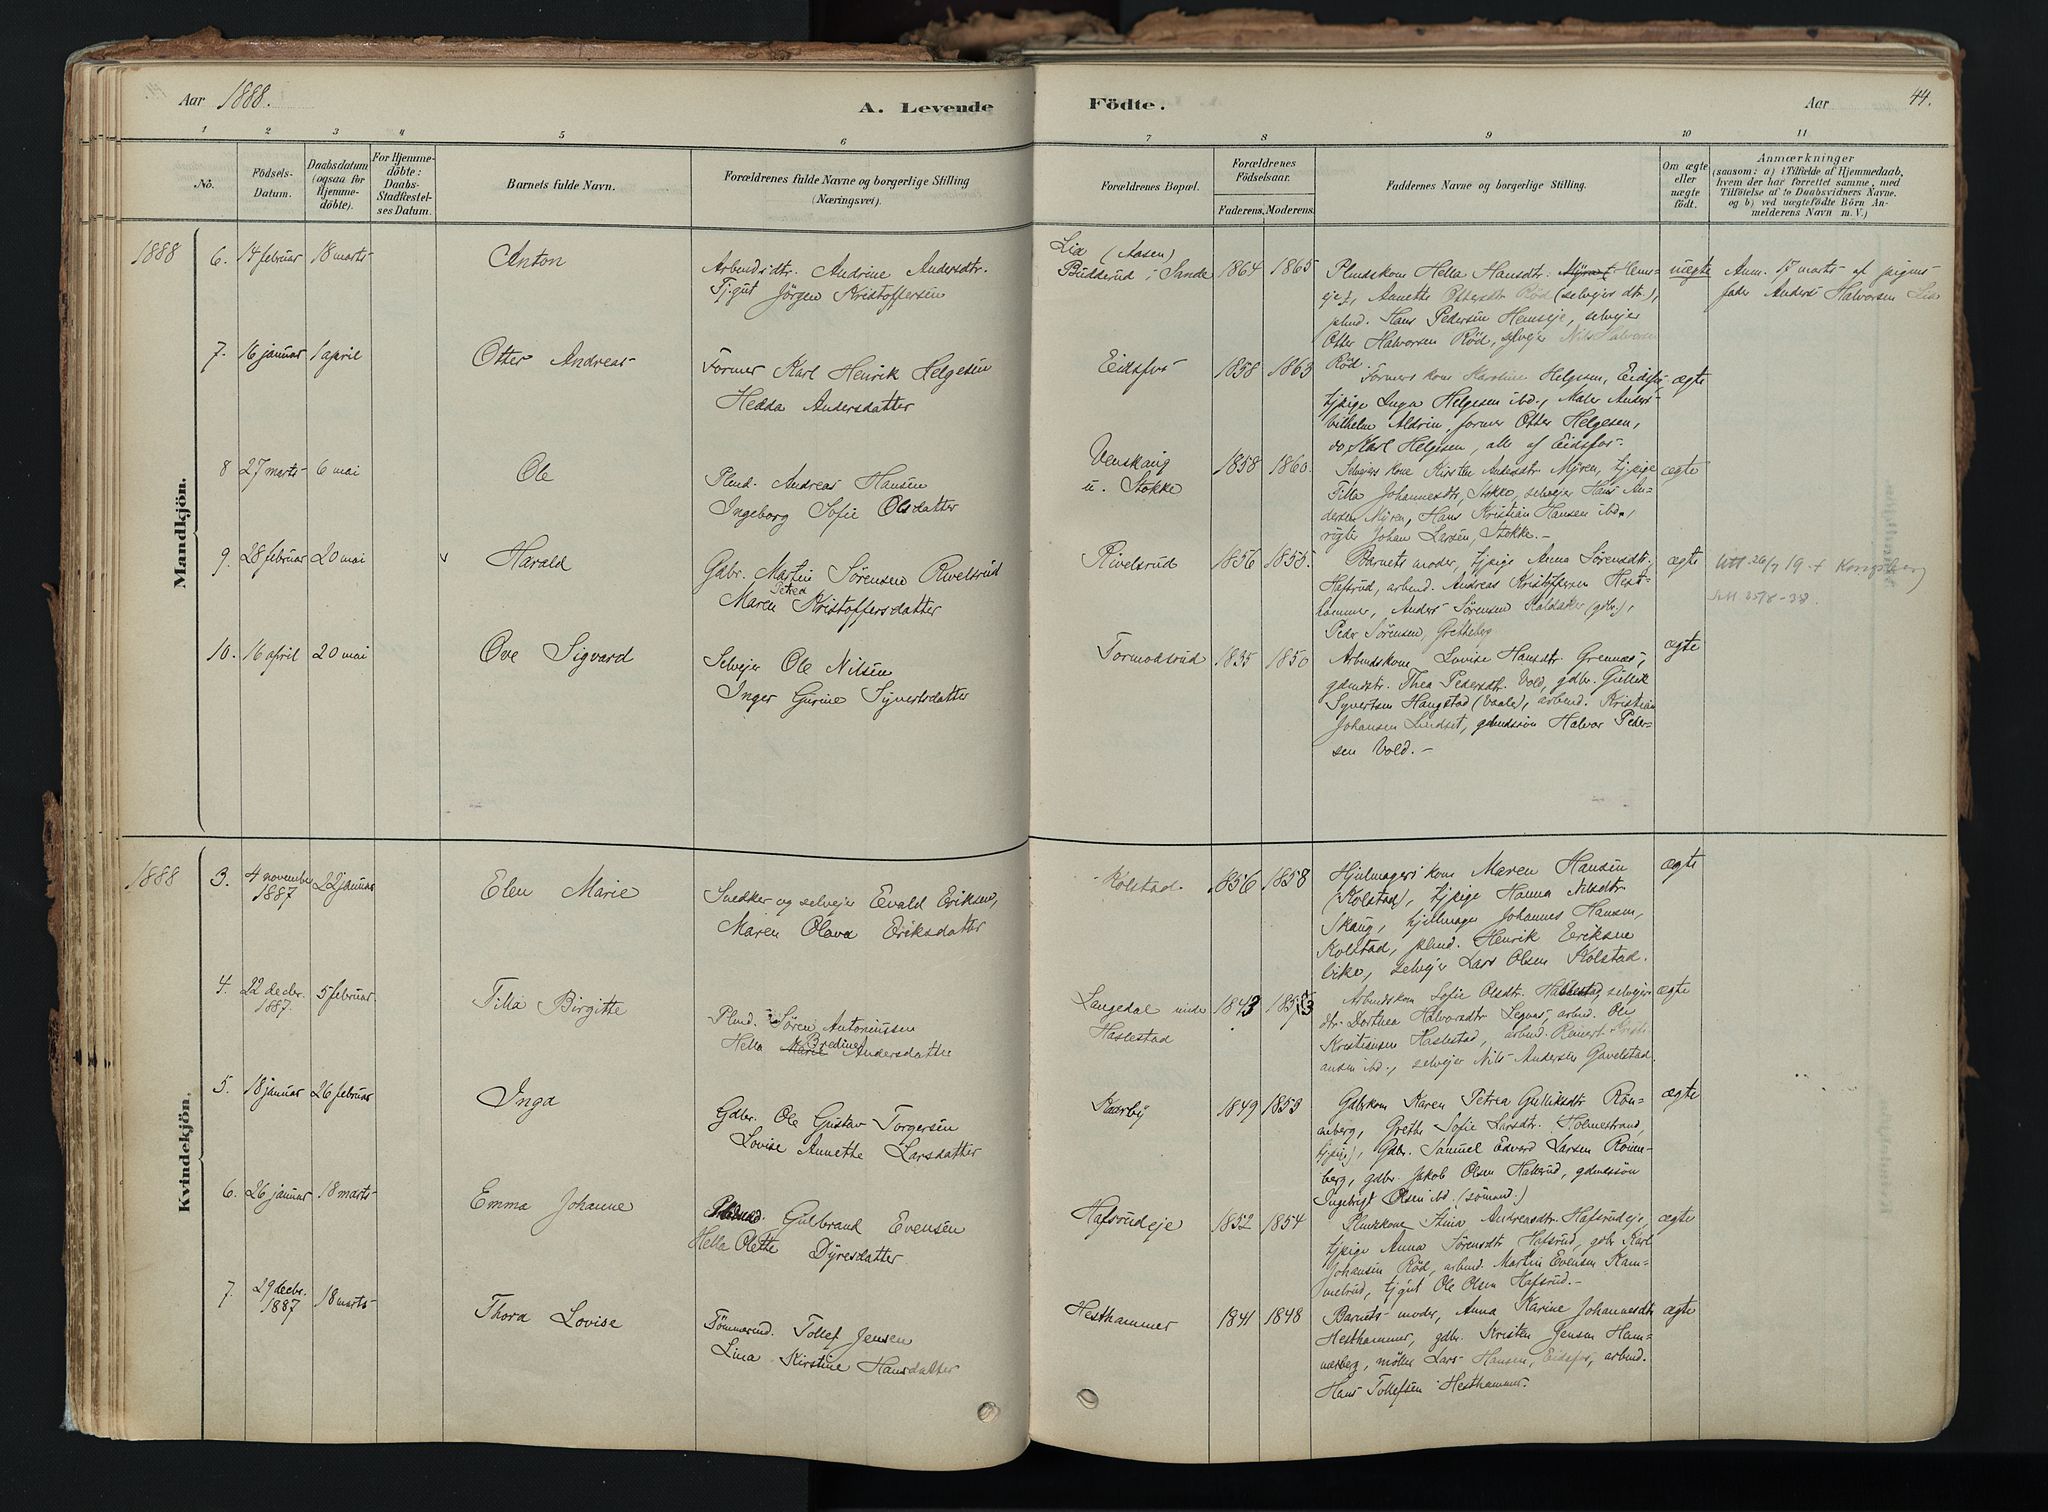 Aar 1888.
A. Levende Födte.
Aar
44.
1 2 3 4 5 6 7 8 9 10 11
No.
Födsels-Datum.
Daabsdatum (ogsaa for Hjemmedöbte).
For Hjemmedöbte: Daabs-Stadfæstelses Datum.
Barnets fulde Navn.
Forældrenes fulde Navne og borgerlige Stilling (Næringsvei).
Forældrenes Bopæl.
Forældrenes Födselsaar.
Faderens. Moderens.
Faddernes Navne og borgerlige Stilling.
Om ægte eller uægte födt.
Anmærkninger
(saasom: a) i Tilfælde af Hjemmedaab, hvem der har forrettet samme, med Tilföielse af to Daabsvidners Navne. og b) ved uægtefödte Börn Anmelderens Navn m. V.)
Mandkjön.
1888 6. 14 februar 18 marts Anton
Arbeidsdtr. Andrine Andersdtr.
Tj.gut Jörgen Kristoffersen
Lia (Aasen)
Budderud i Sande 1864 1865
Plmdskone Hella Hansdtr. Myra Hemseje, Annette Ottersdtr Röd (selvejer dtr.),
plmd. Hans Pedersen Hemseje, selvejer
Otter Halvorsen Röd, selvejer Nils Halvorsen
Röd.
uægte
Anm. 17 marts af pigens
fader Anders Halvorsen Lia
7. 16 januar 1 april Otter Andreas
Former Karl Henrik Helgesen
Hedda Andersdatter
Eidsfos 1858 1863
Formers kone Karoline Helgesen, Eidsfos,
tj.pige Inga Helgesen ibd., Maler Anders
Vilhelm Aldrin, former Otter Helgesen,
do Karl Helgesen, alle af Eidsfos.
ægte
8 27 marts 6 mai Ole
Plmd. Andreas Hansen
Ingeborg Sofie Olsdatter
Venskaug
u. Stokke 1858 1860.
Selvejers kone Kirsten Andersdtr. Myren, tj.pige
Tilla Johannesdtr, Stokke, selvejer Hans Andersen Myren, Hans Kristian Hansen ibd.,
Johan Larsen, Stokke.
ægte
9. 28 februar 20 mai Harald
Gdbr. Martin Sörensen Rivelsrud
Maren Petrea Kristoffersdatter
Rivelsrud 1856 1855.
Barnets moder, tj.pige Anna Sörensdtr.
Hafsrud, arbeid. Andreas Kristoffersen Hesthammer, Anders Sörensen Kaldaker (gdbr.),
Peder Sörensen, Gretteberg
ægte
Utt. 26/7 19 + Kongsberg
25/8-38.
10. 16 april 20 mai Ove Sigvard
Selvejer Ole Nilsen
Inger Gurine Syvertsdatter
Tormodsrud 1835 1850
Arbeidskone Lovise Hansdtr. Grennes,
gdmdsdtr. Thea Pedersdtr. Vold, gdbr. Gullik
Syvertsen Haugstad (Vaale), arbeid. Kristian
Johansen Lindset, gdmdssön Halvor Pedersen Vold.
ægte
Kvindekjön.
1888 3. 4 november 1887 22 januar Elen Marie
Snedker og selvejer Evald Eriksen,
Maren Olava Eriksdatter
Kolstad. 1856 1858
Hjulmagers kone Maren Hansen
(Kolstad), tj.pige Hanna Nilsdtr.
Skaug, hjulmager Johannes Hansen,
Kolstad, plmd. Henrik Eriksen
Vike, selvejer Lars Olsen Kolstad.
ægte
4. 22 decbr. 1887. 5 februar Tilla Birgitte
Plmd. Sören Antoniussen
Hella Bredine Andersdatter
Langedal under
Haslestad 1843 1853
Arbeidskone Sofie Olsdtr. Haslestad, selvejer
dtr. Dorthea Halvorsdtr. Legnes, arbeid. Ole
Kristiansen Haslestad, arbeid. Reinert Kristiansen ibd., selvejer Nils Andersen Gavelstad.
ægte
5. 18 januar 26 februar Inga
Gdbr. Ole Gustav Torgersen
Lovise Annette Larsdatter
Kaarby 1849 1853
Gdbrkone Karen Petrea Gulliksdtr Rönneberg, Grethe Sofie Larsdtr. Holmestrand
(tj.pige), Gdbr. Samuel Edvard Larsen Rönneberg, gdbr. Jakob Olsen Hakerud, gdmdssön
Ingebrigt Olsen ibd. (sömand.)
ægte
6. 26 januar 18 marts Emma Johanne
Plmd. Gulbrand Evensen
Hella Olette Dyresdatter
Hafsrudeje 1852 1854
Plmdskone Stina Andreasdtr. Hafsrudeje,
tj.pige Anna Sörensdtr Hafsrud, gdbr Karl
Johansen Röd, arbeid. Martin Evensen Kammelrud, tj.gut Ole Olsen Hafsrud.
ægte
7. 29 decbr. 1887 18 marts Thora Lovise
Tömmermd. Tollef Jensen
Lina Kirstine Hansdatter
Hesthammer 1841 1848
Barnets moder, Anna Karine Johannesdtr
Hesthammer, gdbr. Kristen Jensen Hammerberg, möller Lars Hansen, Eidsfos, arbeid.
Hans Tollefsen Hesthammer.
ægte